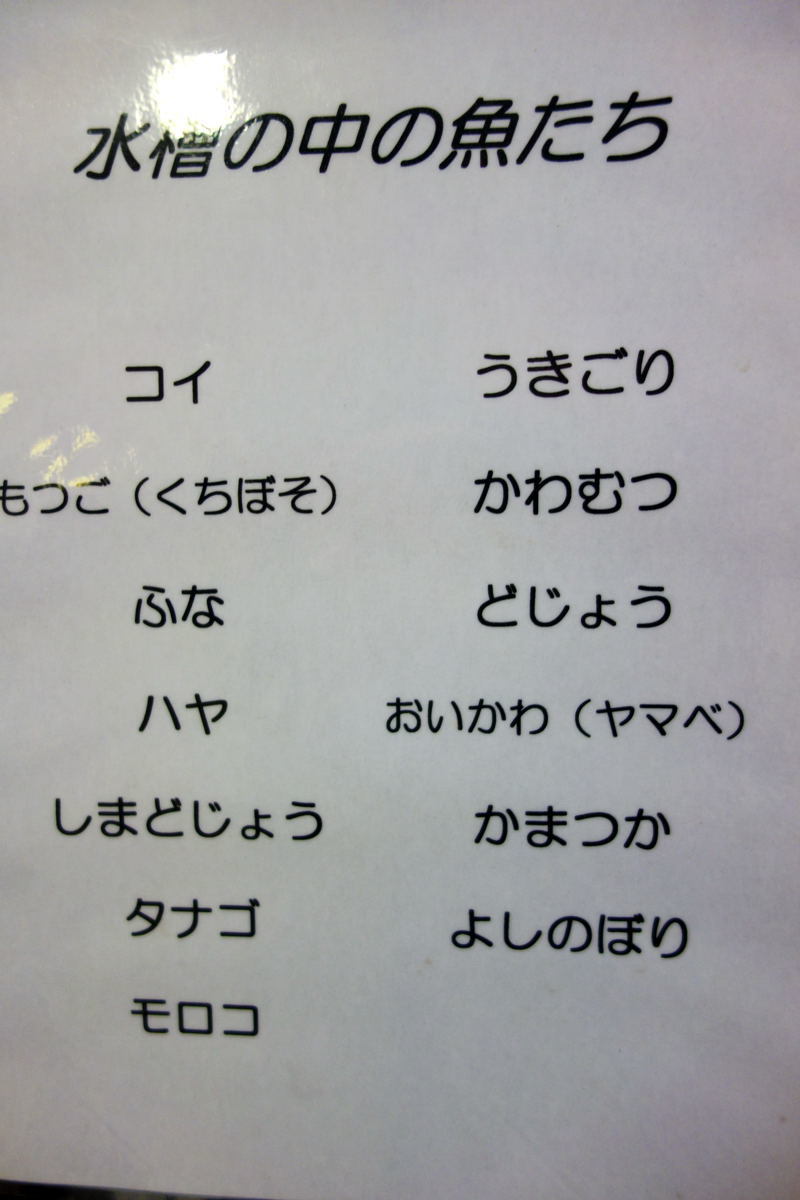 水槽の中の魚たち
コイ
もつご（くちぼそ）
ふな
ハヤ
しまどじょう
タナゴ
モロコ
うきごり
かわむつ
どじょう
おいかわ（ヤマベ）
かまつか
よしのぼり